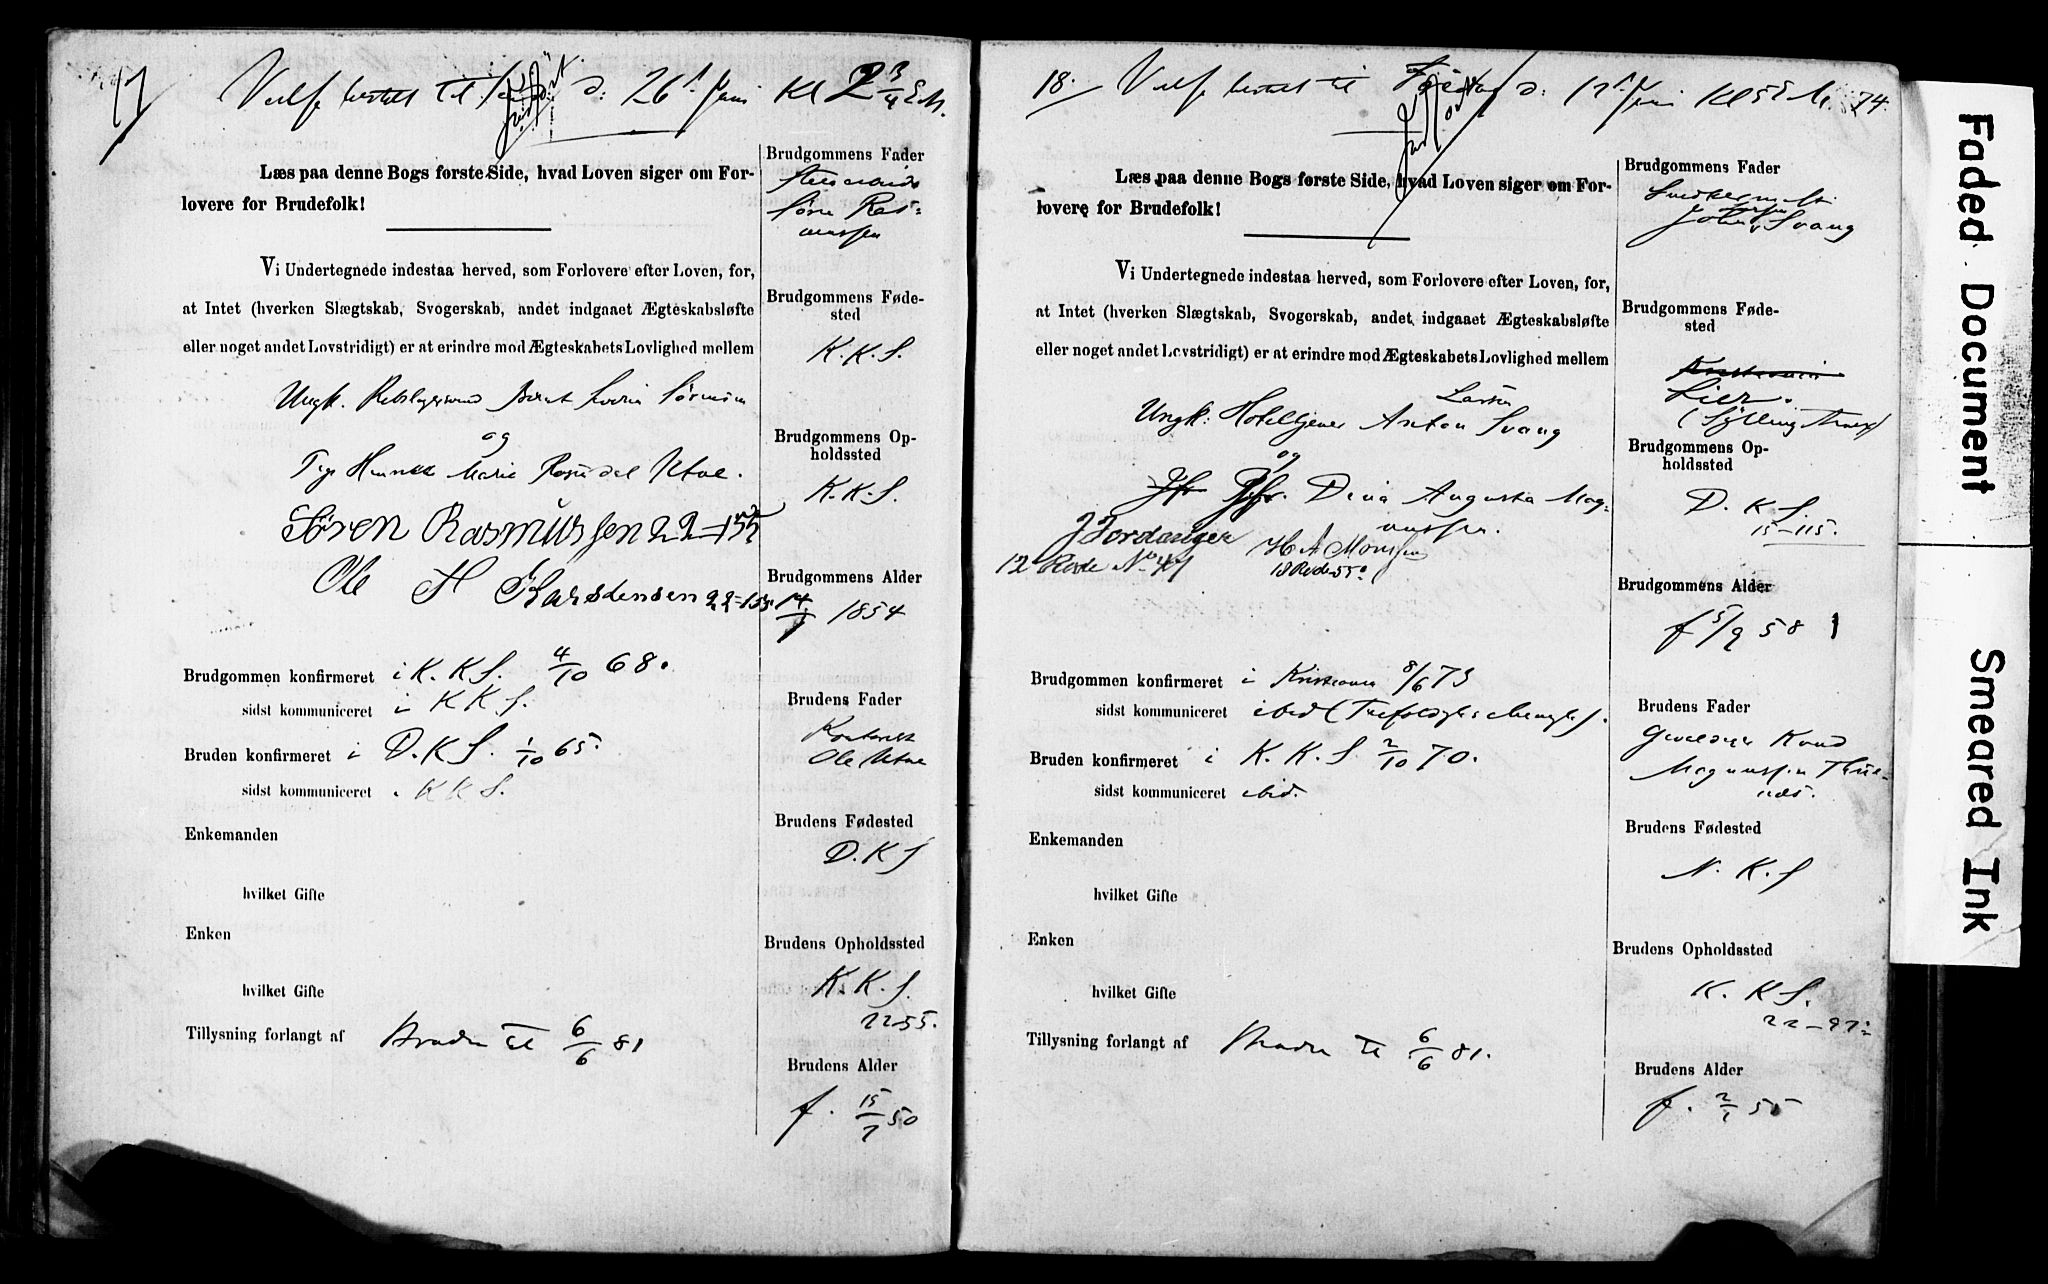 17
Vielse bestilt til d: 26d Juni Kl 2 3/4 EM.
Læs paa denne Bogs første Side, hvad Loven siger om For-
lovere for Brudefolk!
Vi Undertegnede indestaa herved, som Forlovere efter Loven, for,
at Intet (hverken Slægtskab, Svogerskab, andet indgaaet Ægteskabsløfte
eller noget andet Lovstridigt) er at erindre mod Ægteskabets Lovlighed mellem
Ungk.
og
Marie
Søren Rasmussen 22-155
Ole H Karstensen 22-155
Brudgommen konfirmeret i K. K. S. 4/10 68.
sidst kommuniceret i K K S.
Bruden konfirmeret i D. K S. 1/10 65.
sidst kommuniceret . K K S.
Enkemanden
hvilket Gifte
Enken
hvilket Gifte
Tillysning forlangt af Bruden til 6/6 81
Brudgommens Fader
Søren Ras=
mussen
Brudgommens Føde-
sted
K. K. S.
Brudgommens Op-
holdssted
K. K. S.
Brudgommens Alder
1854
Brudens Fader
Kontorist
Ole Utne
Brudens Fødested
D. K S
Brudens Opholdssted
K K. S.
22-55.
Brudens Alder
f. 15/7 50
18. Vielse bestilt til d: 12d Juni Kl 5 E M. 74
Læs paa denne Bogs første Side, hvad Loven siger om For-
lovere for Brudefolk!
Vi Undertegnede indestaa herved, som Forlovere efter Loven, for,
at Intet (hverken Slægtskab, Svogerskab, andet indgaaet Ægteskabsløfte
eller noget andet Lovstridigt) er at erindre mod Ægteskabets Lovlighed mellem
Larsen
Ungk: Hoteltjener Anton Svang
og
Pige. Dina Augusta Mag=
nussen.
J Jordanger H A Monssen
12 Rode No 47 18 Rode 55
Brudgommen konfirmeret i Kristiania 8/6 73
sidst kommuniceret ibid (Trefoldigheds Menighed).
Bruden konfirmeret i K. K. S 2/10 70.
sidst kommuniceret ibid.
Enkemanden
hvilket Gifte
Enken
hvilket Gifte
Tillysning forlangt af Bruden til 6/6 81.
Brudgommens Fader
Snedkermester
Svang
Brudgommens Føde-
sted
Kristiania
Lier.
(Sylling Annex)
Brudgommens Op-
holdssted
D. K S.
15-115.
Brudgommens Alder
f 5/9 58
Brudens Fader
Knud
Magnussen
Brudens Fødested
N. K. S
Brudens Opholdssted
K. K S.
Brudens Alder
f. 2/1 55
Faded Document
Smeared Ink